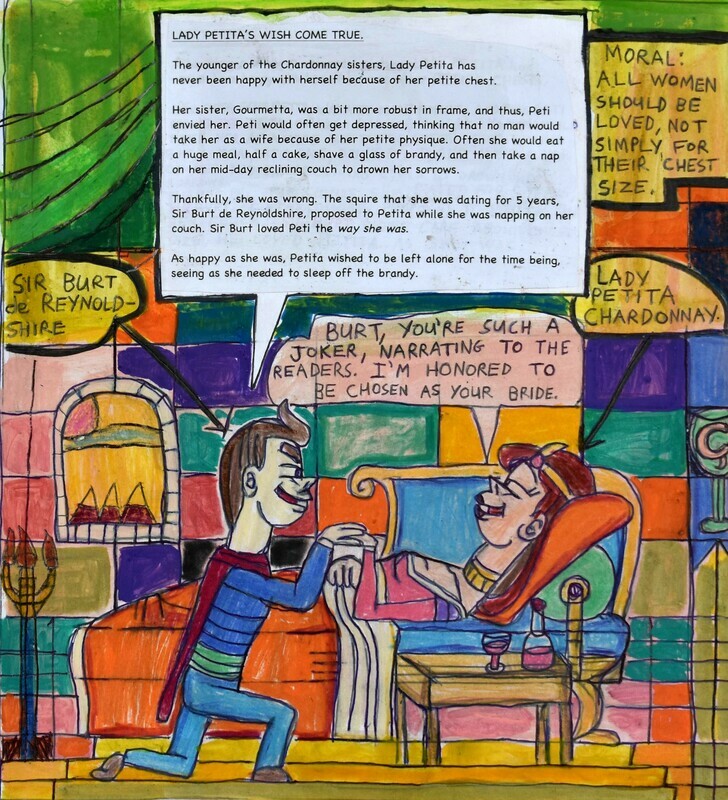 LADY PETITA'S WISH COME TRUE.
The younger of the Chardonnay sisters, Lady Petita has
never been happy with herself because of her petite chest.
Her sister, Gourmetta, was a bit more robust in frame, and thus, Peti
envied her. Peti would often get depressed, thinking that no man would
take her as a wife because of her petite physique. Often she would eat
a huge meal, half a cake, shave a glass of brandy, and then take a nap
on her mid-day reclining couch to drown her sorrows.
Thankfully, she was wrong. The squire that she was dating for 5 years,
Sir Burt de Reynoldshire, proposed to Petita while she was napping on her
couch. Sir Burt loved Peti the way she was.
As happy as she was, Petita wished to be left alone for the time being,
seeing as she needed to sleep off the brandy.
MORAL:
ALL WOMEN
SHOULD BE
LOVED, NOT
SIMPLY FOR
THEIR CHEST
SIZE.
SIR BURT
de REYNOLD-
SHIRE
LADY
PETITA
CHARDONNAY.
BURT, YOU'RE SUCH A
JOKER, NARRATING TO THE
READERS. I'M HONORED TO
BE CHOSEN AS YOUR BRIDE.